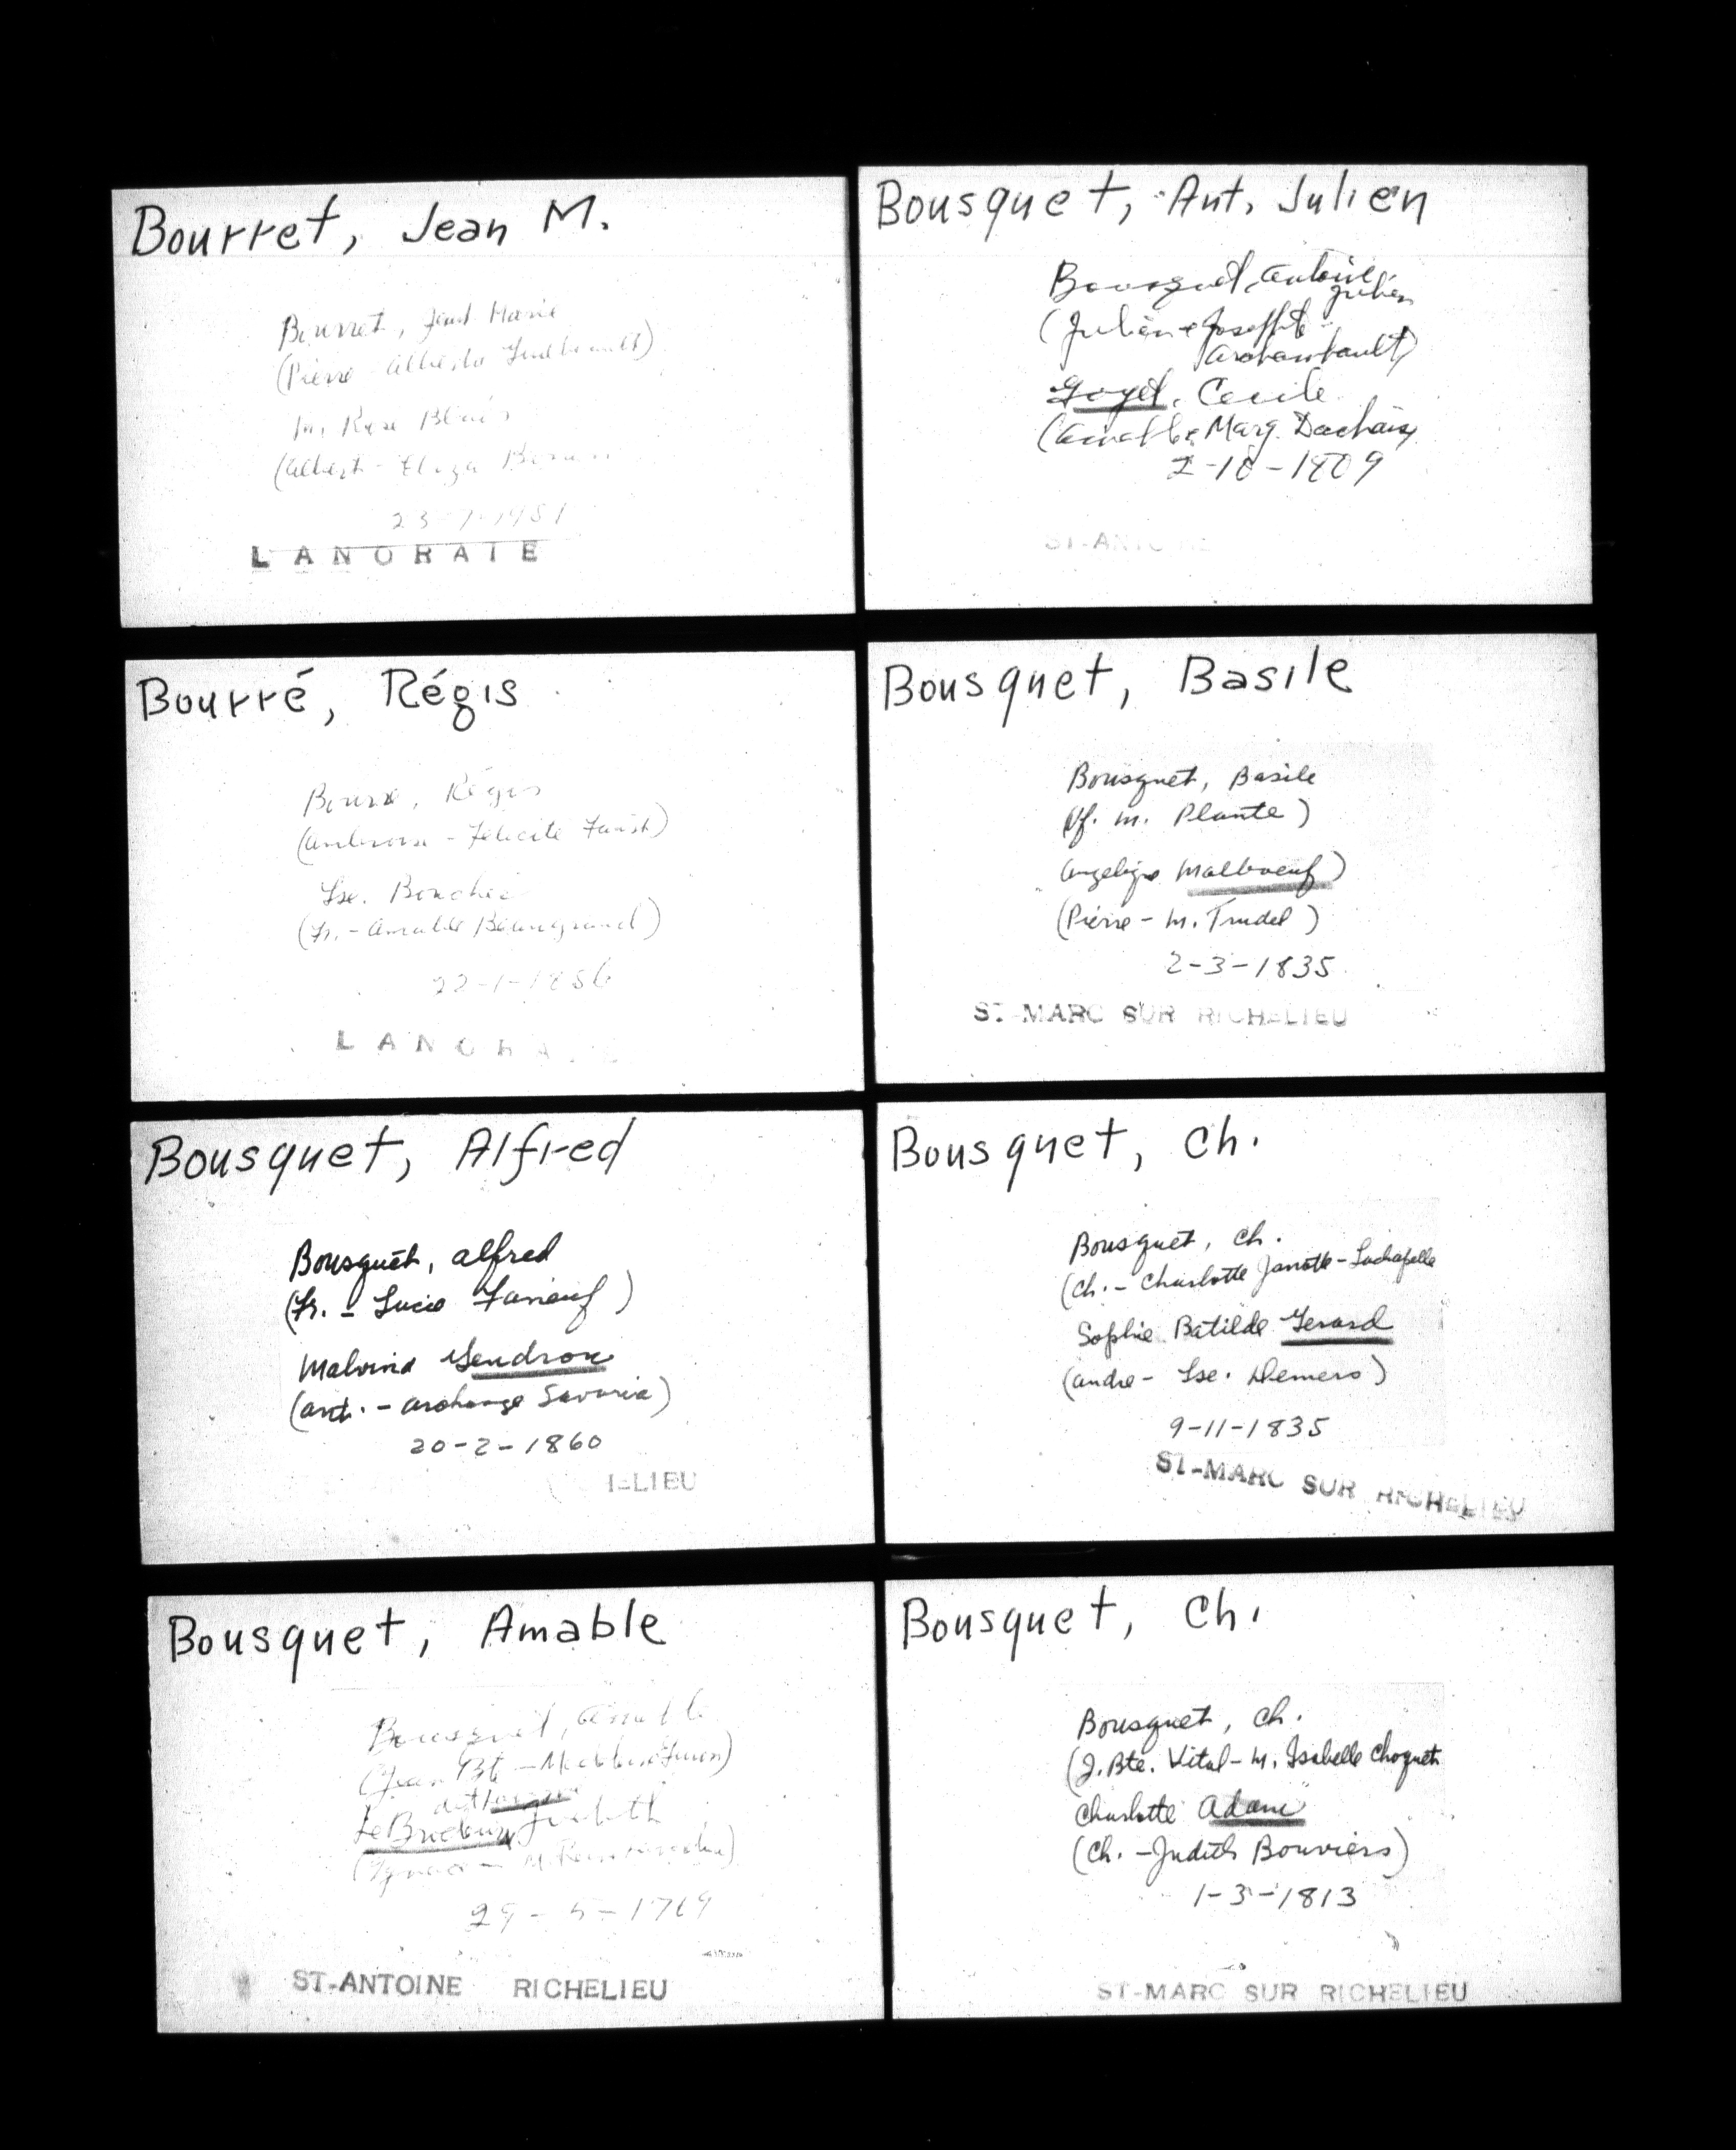 Bourret, Jean M.
Bourret, Jean Marie
(Pierre - Alberta
M. Rose Blais
(Albert - Eliza
23-7-1951
LANORAIE
Bourré, Régis
Bourré, Régis
(Ambroise - Felicite
Lse. Boucher
(Fr. - Amable Beaugrand)
22-1-1856
LANORAIE
Bousquet, Alfred
Bousquet, Alfred
(Fr. - Lucie Faneuf)
Malvina Gendron
(Ant. - Archange Savaria)
20-2-1860
LIEU
Bousquet, Amable
Bousquet, Amable
(Jean Bte -
dit
LeBrodeur Judith
(Ignace -
1769
ST-ANTOINE RICHELIEU
Bousquet, Ant. Julien
Bousquet, Antoine
Julien
(Julien & Josephte
Archambault)
Goyet, Cecile
(Amable & Marg. Dachaix
2-10-1809
ST-ANTOINE
Bousquet, Basile
Bousquet, Basile
(Vf. M. Plante)
Angeliqe Malboeuf)
(Pierre - M. Trudel)
2-3-1835
ST-MARC SUR RICHELIEU
Bousquet, Ch.
Bousquet, Ch.
(Ch. - Charlotte Janotte-Lachapelle
Sophie Batilde Gerard
(Andre - Lse. Demers)
9-11-1835
ST-MARC SUR RICHELIEU
Bousquet, Ch.
Bousquet, Ch.
(J. Bte. Vital - M. Isabelle Choquet
Charlotte Adam
(Ch. - Judith Bouviers)
1-3-1813
ST-MARC SUR RICHELIEU